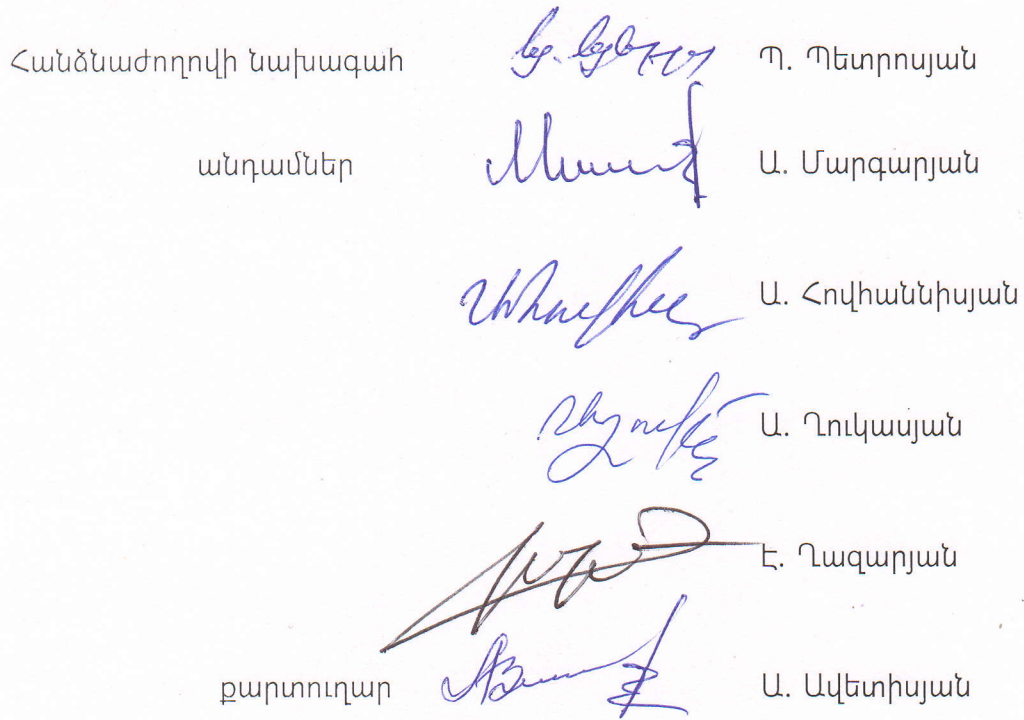 Հանձնաժողովի նախագահ Պ. Պետրոսյան
անդամներ Ա. Մարգարյան
Ա. Հովհաննիսյան
Ա. Ղուկասյան
Է. Ղազարյան
քարտուղար Ա. Ավետիսյան